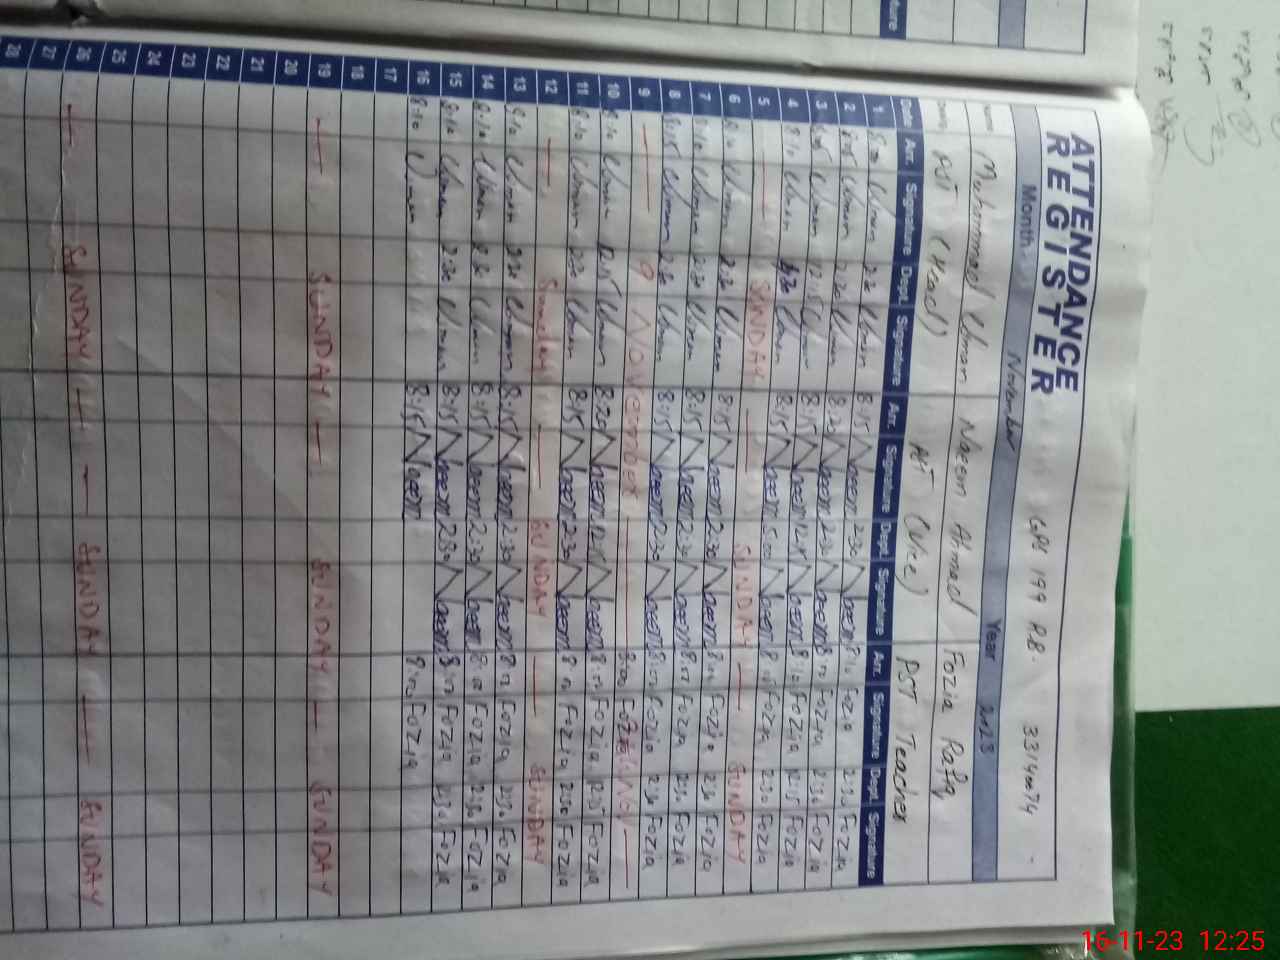 ATTENDANCE
REGISTER
GPS 199 R.B. 33140074
Month November Year 2023
Name Muhammad Usman Naeem Ahmad Fozia Rafiq
AST (Head) AST (Nice) PST Teacher
Date Arr. Signature Dept. Signature Arr. Signature Dept. Signature Arr. Signature Dept. Signature
1 Usman 2:30 Usman 8:15 Naeem 2:30 Naeem 8:10 Fozia 2:30 Fozia
2 8:05 Usman 2:30 Usman 8:20 Naeem 2:30 Naeem Fozia 2:30 Fozia
3 8:05 Usman 12:15 Usman 8:15 Naeem 12:15 Naeem 8:10 Fozia 12:15 Fozia
4 8:10 Usman Usman 8:15 Naeem Naeem Fozia 2:30 Fozia
5 SUNDAY SUNDAY SUNDAY
6 8:10 Usman 2:30 Usman 8:15 Naeem 2:30 Naeem Fozia 2:30 Fozia
7 8:10 Usman 2:30 Usman 8:15 Naeem 2:30 Naeem Fozia 2:30 Fozia
8 8:15 Usman 2:30 Usman 8:15 Naeem 2:30 Naeem Fozia 2:30 Fozia
9 9 November Fozia
10 8:10 Usman 12:15 Usman 8:20 Naeem 12:15 Naeem Fozia Fozia
11 8:10 Usman 2:30 Usman 8:15 Naeem 2:30 Naeem Fozia 2:30 Fozia
12 Sunday SUNDAY SUNDAY
13 8:10 Usman 2:30 Usman 8:15 Naeem 2:30 Naeem Fozia 2:30 Fozia
14 8:10 Usman 2:30 Usman 8:15 Naeem 2:30 Naeem Fozia 2:30 Fozia
15 8:10 Usman 2:30 Usman 8:15 Naeem 2:30 Naeem Fozia 2:30 Fozia
16 8:10 Usman 8:15 Naeem Fozia
17
18
19 SUNDAY SUNDAY SUNDAY
20
21
22
23
24
25
26 SUNDAY SUNDAY SUNDAY
27
28
16-11-23 12:25